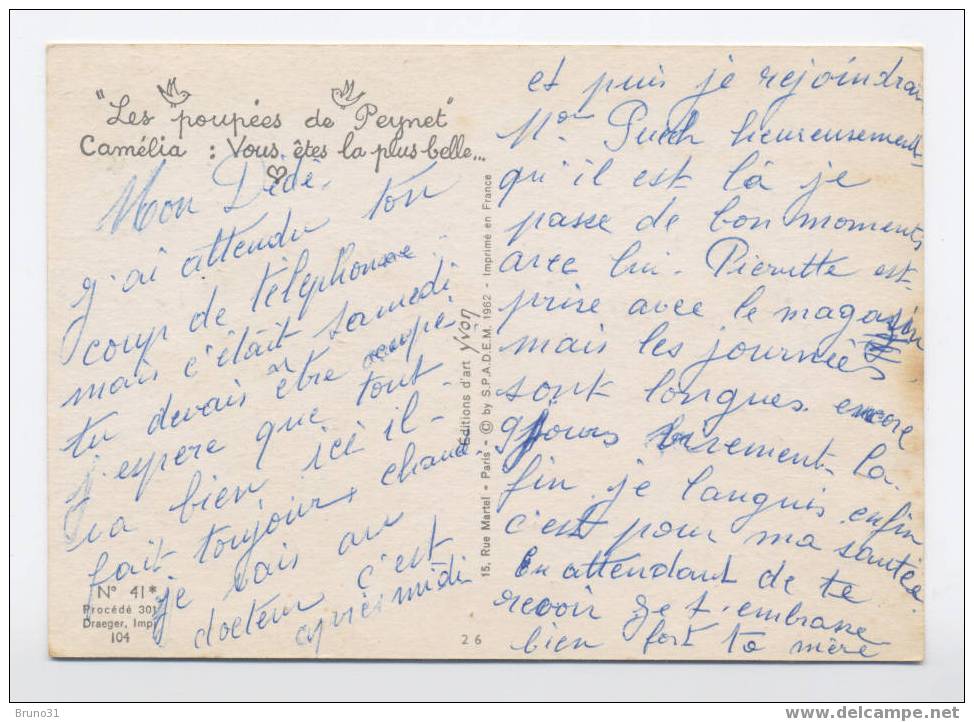 "Les poupées de Peynet"
Camélia : Vous êtes la plus belle...
Mon Dédé.
j'ai attendu ton
coup de téléphone
mais c'était samedi
tu devais être occupé
j'espere que tout
va bien ici il
fait toujours chaud
je vais au
docteur c'est
après midi
N° 41*
Procédé 301
Draeger, Imp.
104
26
15, Rue Martel - Paris - © by S.P.A.D.E.M. 1962 - Imprimé en France
Éditions d'art Yvon
et puis je rejoindrai
Mr Puech heureusement
qu'il est là je
passe de bon moments
avec lui - Pierrette est
prise avec le magasin
mais les journées
sont longues encore
9 jours vivement la
fin je languis enfin
c'est pour ma santée
En attendant de te
revoir je t'embrasse
bien fort ta mère
Bruno31
www.delcampe.net